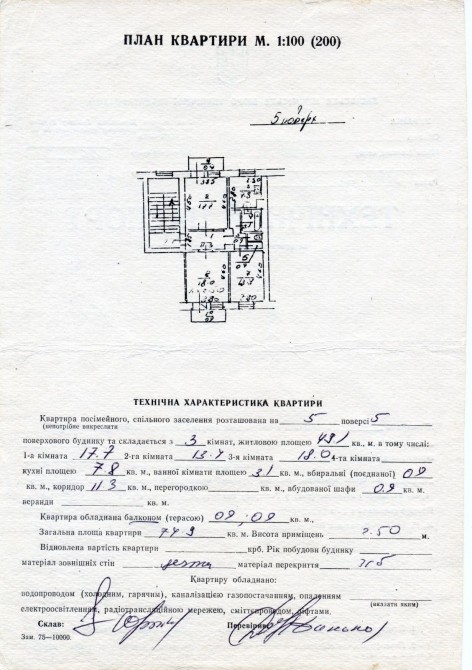 ПЛАН КВАРТИРИ М. 1:100 (200)
5 поверх
ТЕХНІЧНА ХАРАКТЕРИСТИКА КВАРТИРИ
Квартира посімейного, спільного заселення розташована на 5 поверсі 5
(непотрібне викреслити
поверхового будинку та складається з 3 кімнат, житловою площею 49.1 кв., м. в тому числі:
1-а кімната 17.7 2-га кімната 13.4 3-я кімната 18.0 4-та кімната
кухні площею 7.8 кв. м., ванної кімнати площею 3.1 кв. м., вбиральні (поєднаної) 0.9
кв. м., коридор 11.3 м., перегородкою кв. м., вбудованої шафи 0.9 кв. м.
веранди кв. м.
Квартира обладнана балконом (терасою) 0.9; 0.9 кв. м.,
Загальна площа квартири 74.9 кв. м. Висота приміщень 2.50 м.
Відновлена вартість квартири крб. Рік побудови будинку
матеріал зовнішніх стін цегла матеріал перекриття з/б
Квартиру обладнано:
водопроводом (холодним, гарячим), каналізацією газопостачанням, опаленням
електроосвітленням, радіотрансляційною мережею, сміттєпроводом, ліфтами.
(вказати яким)
Склав: Перевірив:
Зам. 75—10000.